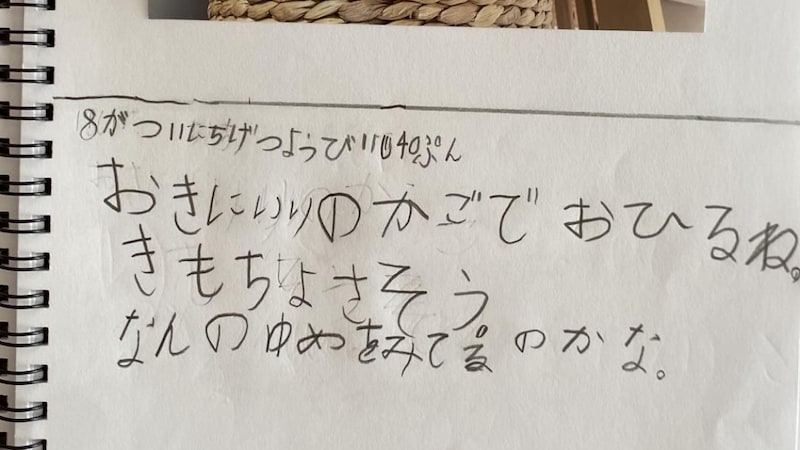 8がついにちげつようび11じ40ぷん
おきにいりのかごでおひるね。
きもちよさそう
なんのゆめをみてるのかな。